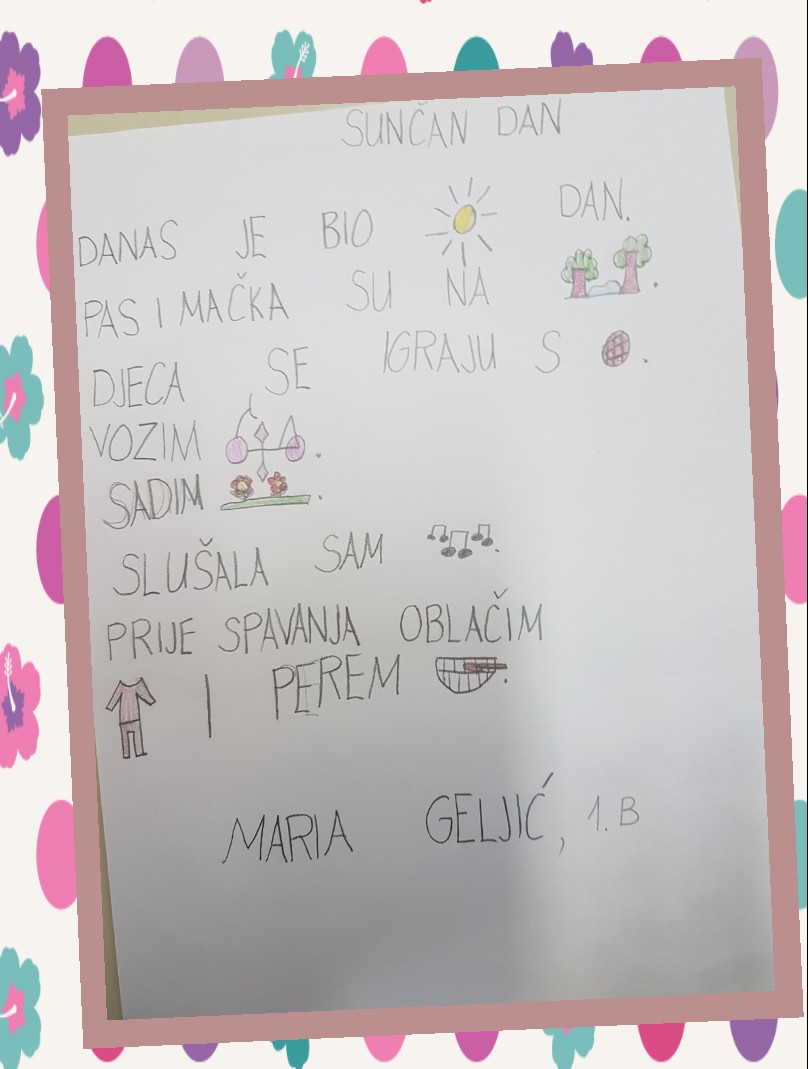 SUNČAN DAN
DANAS JE BIO DAN.
PAS I MAČKA SU NA .
DJECA SE IGRAJU S .
VOZIM .
SADIM .
SLUŠALA SAM .
PRIJE SPAVANJA OBLAČIM
I PEREM .
MARIA GELJIĆ, 1. B